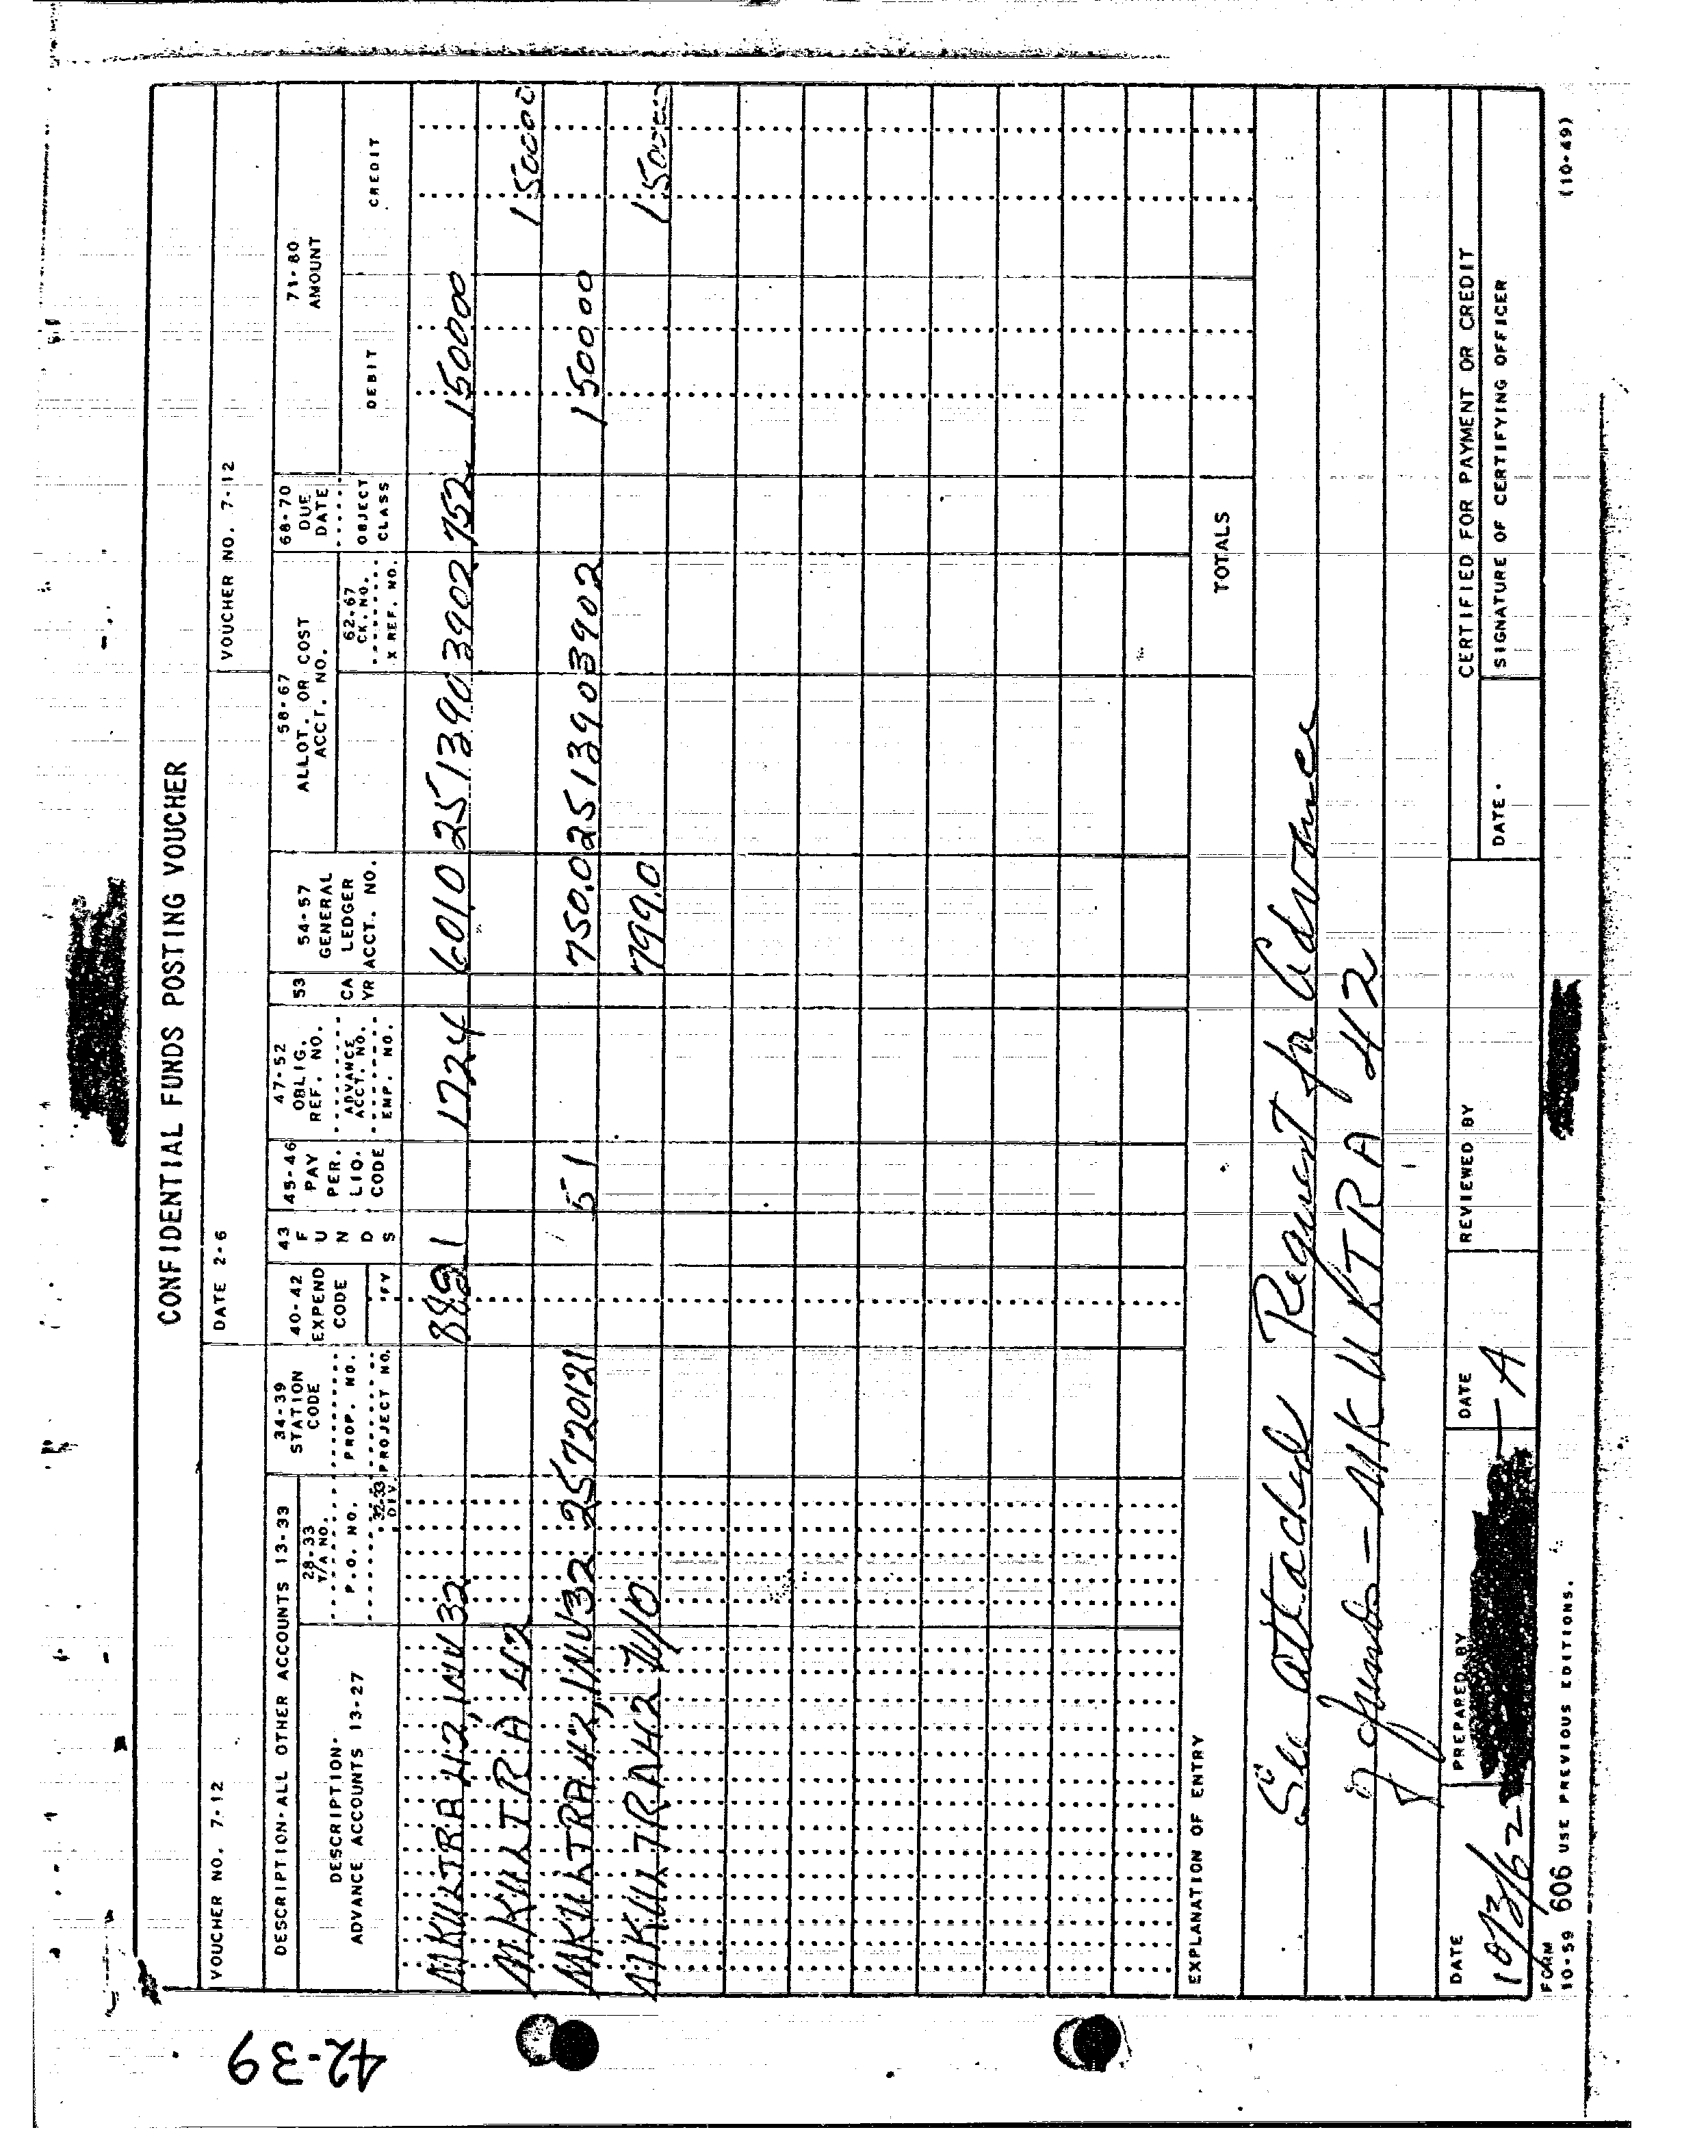 42-39
CONFIDENTIAL FUNDS POSTING VOUCHER
VOUCHER NO. 7-12 DATE 2-6 VOUCHER NO. 7-12
DESCRIPTION-ALL OTHER ACCOUNTS 13-33
DESCRIPTION-
ADVANCE ACCOUNTS 13-27
28-33
T/A NO.
P.O. NO.
32-33
DIV.
34-39
STATION
CODE
PROP. NO.
PROJECT NO.
40-42
EXPEND
CODE
FY
43
F
U
N
D
S
45-46
PAY
PER.
LIQ.
CODE
47-52
OBLIG.
REF. NO.
ADVANCE
ACCT. NO.
EMP. NO.
53
CA
YR
54-57
GENERAL
LEDGER
ACCT. NO.
58-67
ALLOT. OR COST
ACCT. NO.
62-67
CK. NO.
X REF. NO.
68-70
DUE
DATE
OBJECT
CLASS
71-80
AMOUNT
DEBIT
CREDIT
MKULTRA 42, INV 32 1 1724 601.0 2513903902 752 150000
MKULTRA 42 150000
MKULTRA 42, INV 32 2572012 51 750.0 2513903902 150000
MKULTRA 42 799.0
EXPLANATION OF ENTRY TOTALS
See attached Request for Advance
of funds - MKULTRA 42
DATE PREPARED BY DATE REVIEWED BY CERTIFIED FOR PAYMENT OR CREDIT
DATE. SIGNATURE OF CERTIFYING OFFICER
A
FORM
10-59 606 USE PREVIOUS EDITIONS. (10-49)